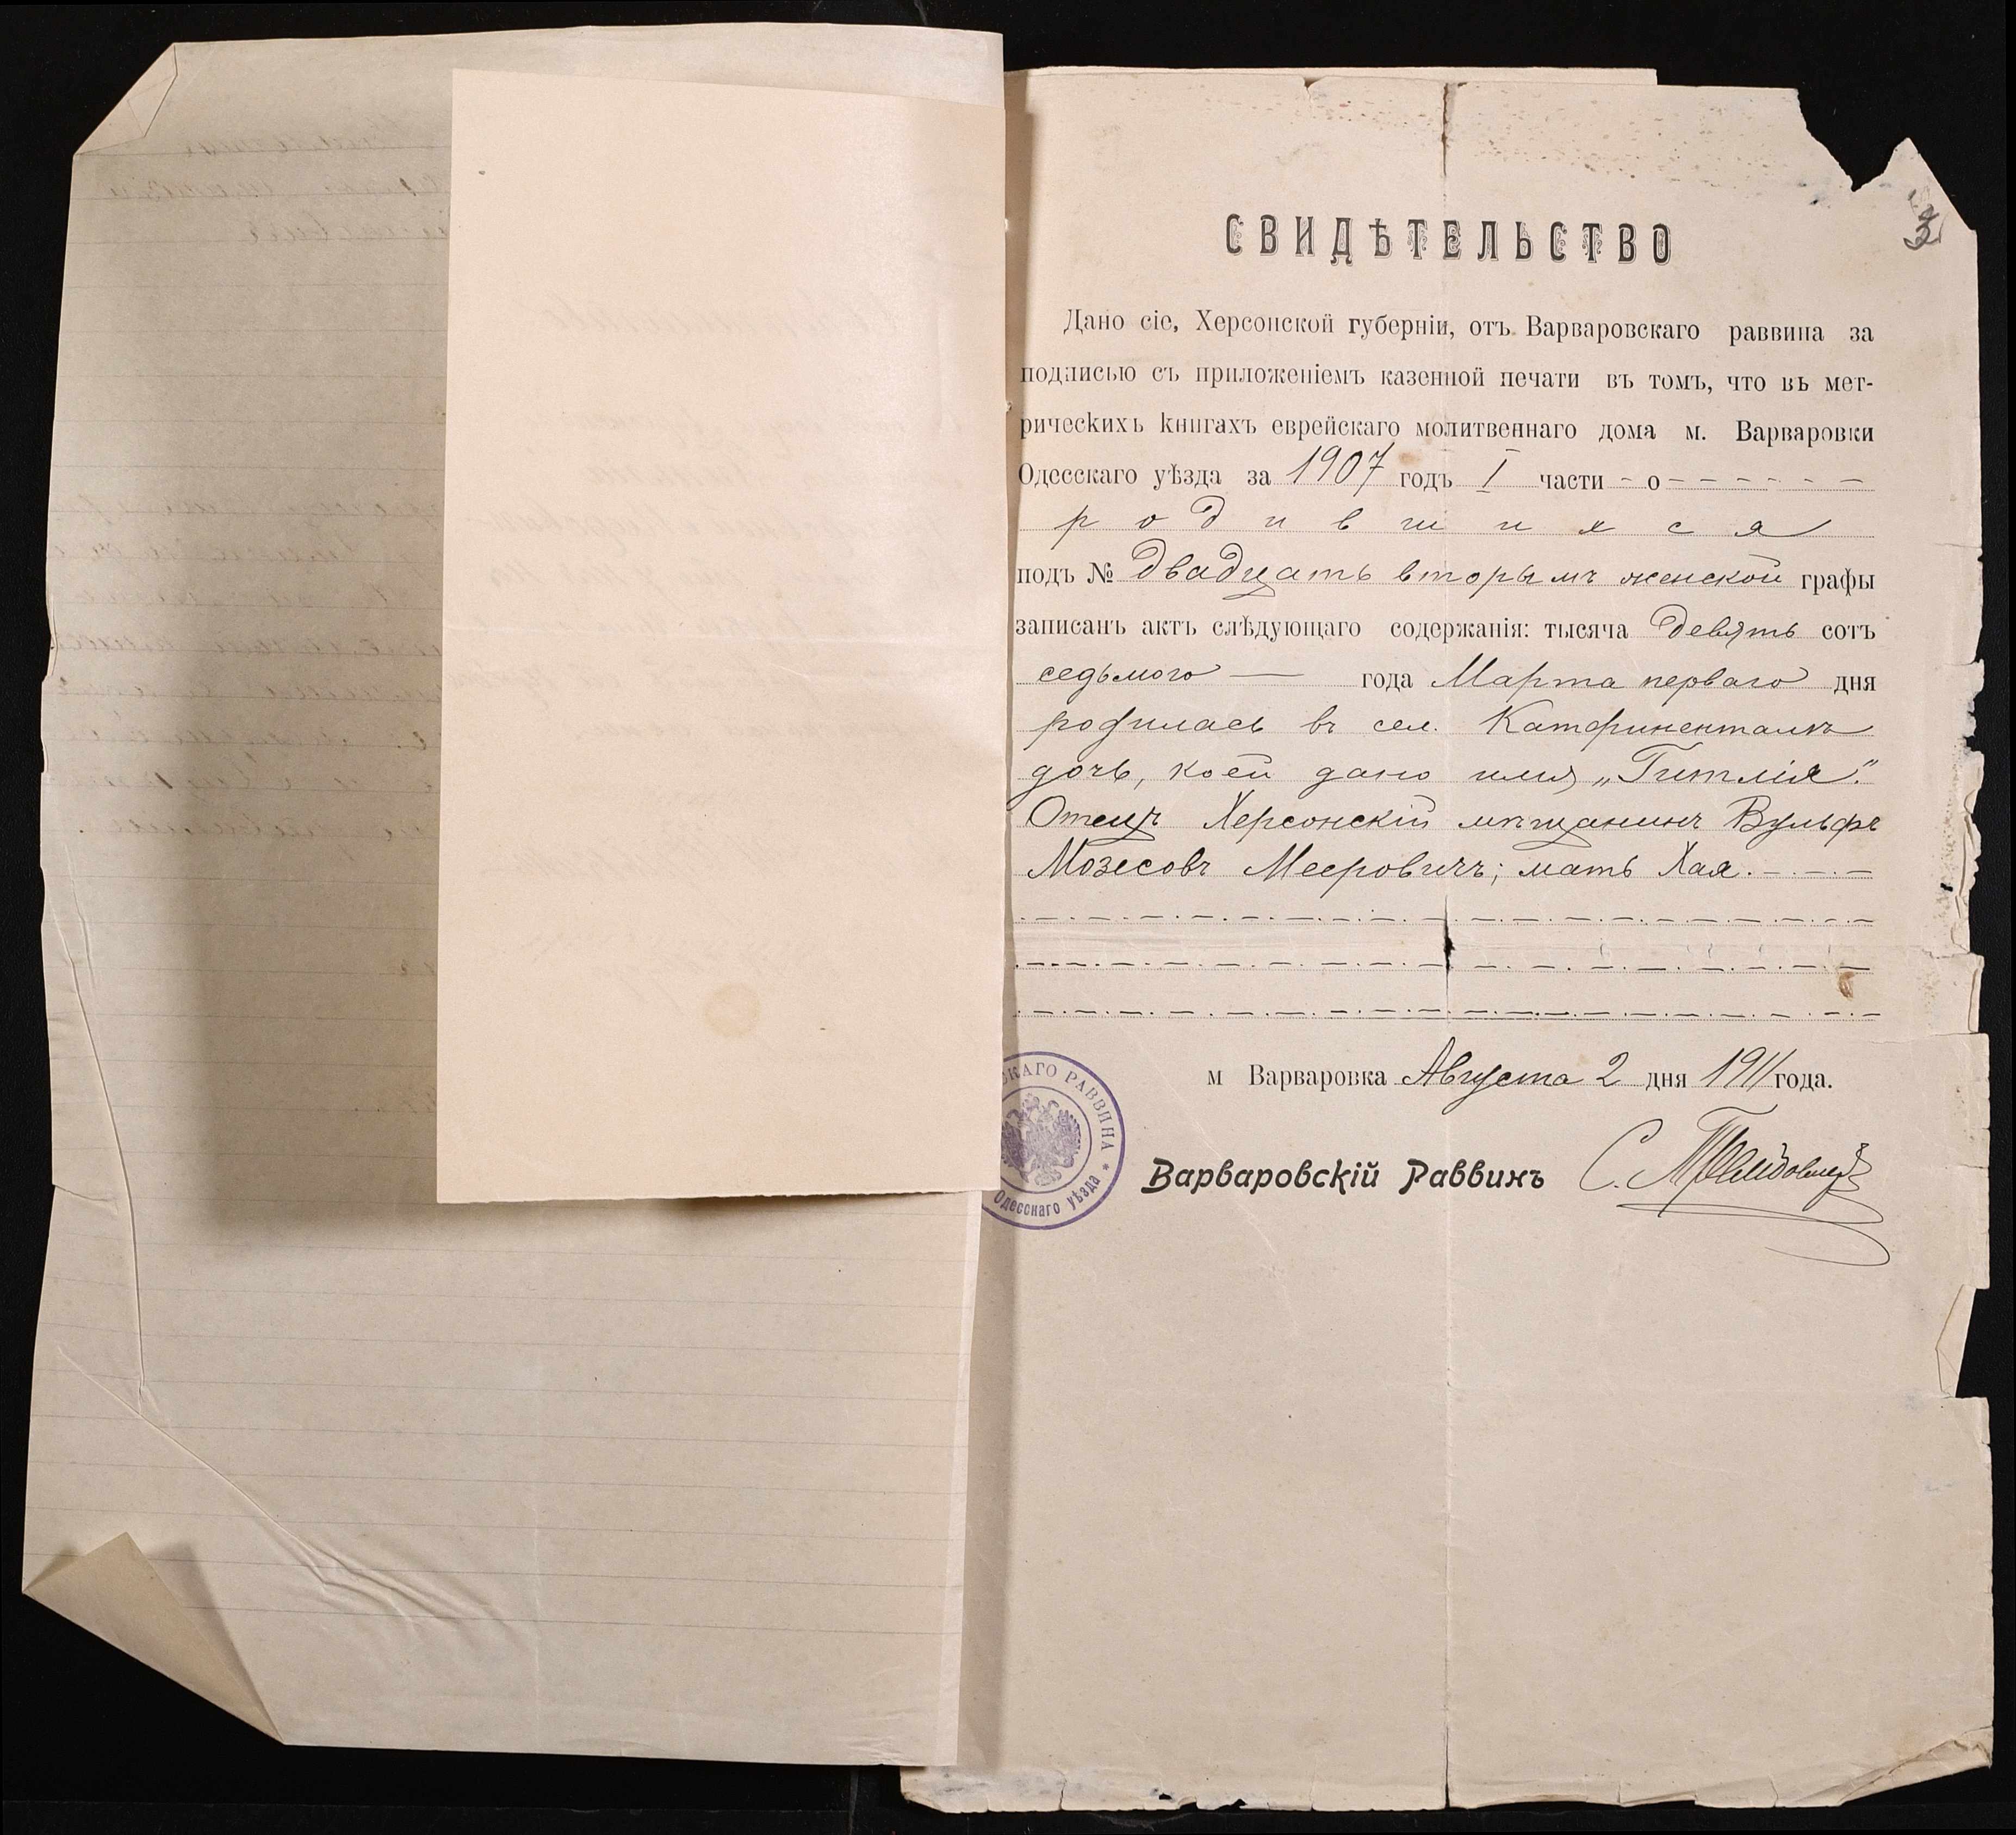 3
СВИДѢТЕЛЬСТВО
Дано сіе, Херсонской губерніи, отъ Варваровскаго раввина за
подписью съ приложеніемъ казенной печати въ томъ, что въ мет-
рическихъ книгахъ еврейскаго молитвеннаго дома м. Варваровки
Одесскаго уѣзда за 1907 годъ I части - о - - - - - -
родившихся
подъ № двадцать вторымъ женской графы
записанъ актъ слѣдующаго содержанія: тысяча девять сотъ
седьмого — года Марта перваго дня
родилась въ сел. Катеринентальѣ
дочь, коей дано имя „Гитлія".
Отецъ Херсонскій мѣщанинъ Вульфъ
Мозесовъ Мееровичъ; мать Хая.
м Варваровка Августа 2 дня 1911 года.
Варваровскій Раввинъ С.
СКАГО РАВВИНА * Одесскаго уѣзда